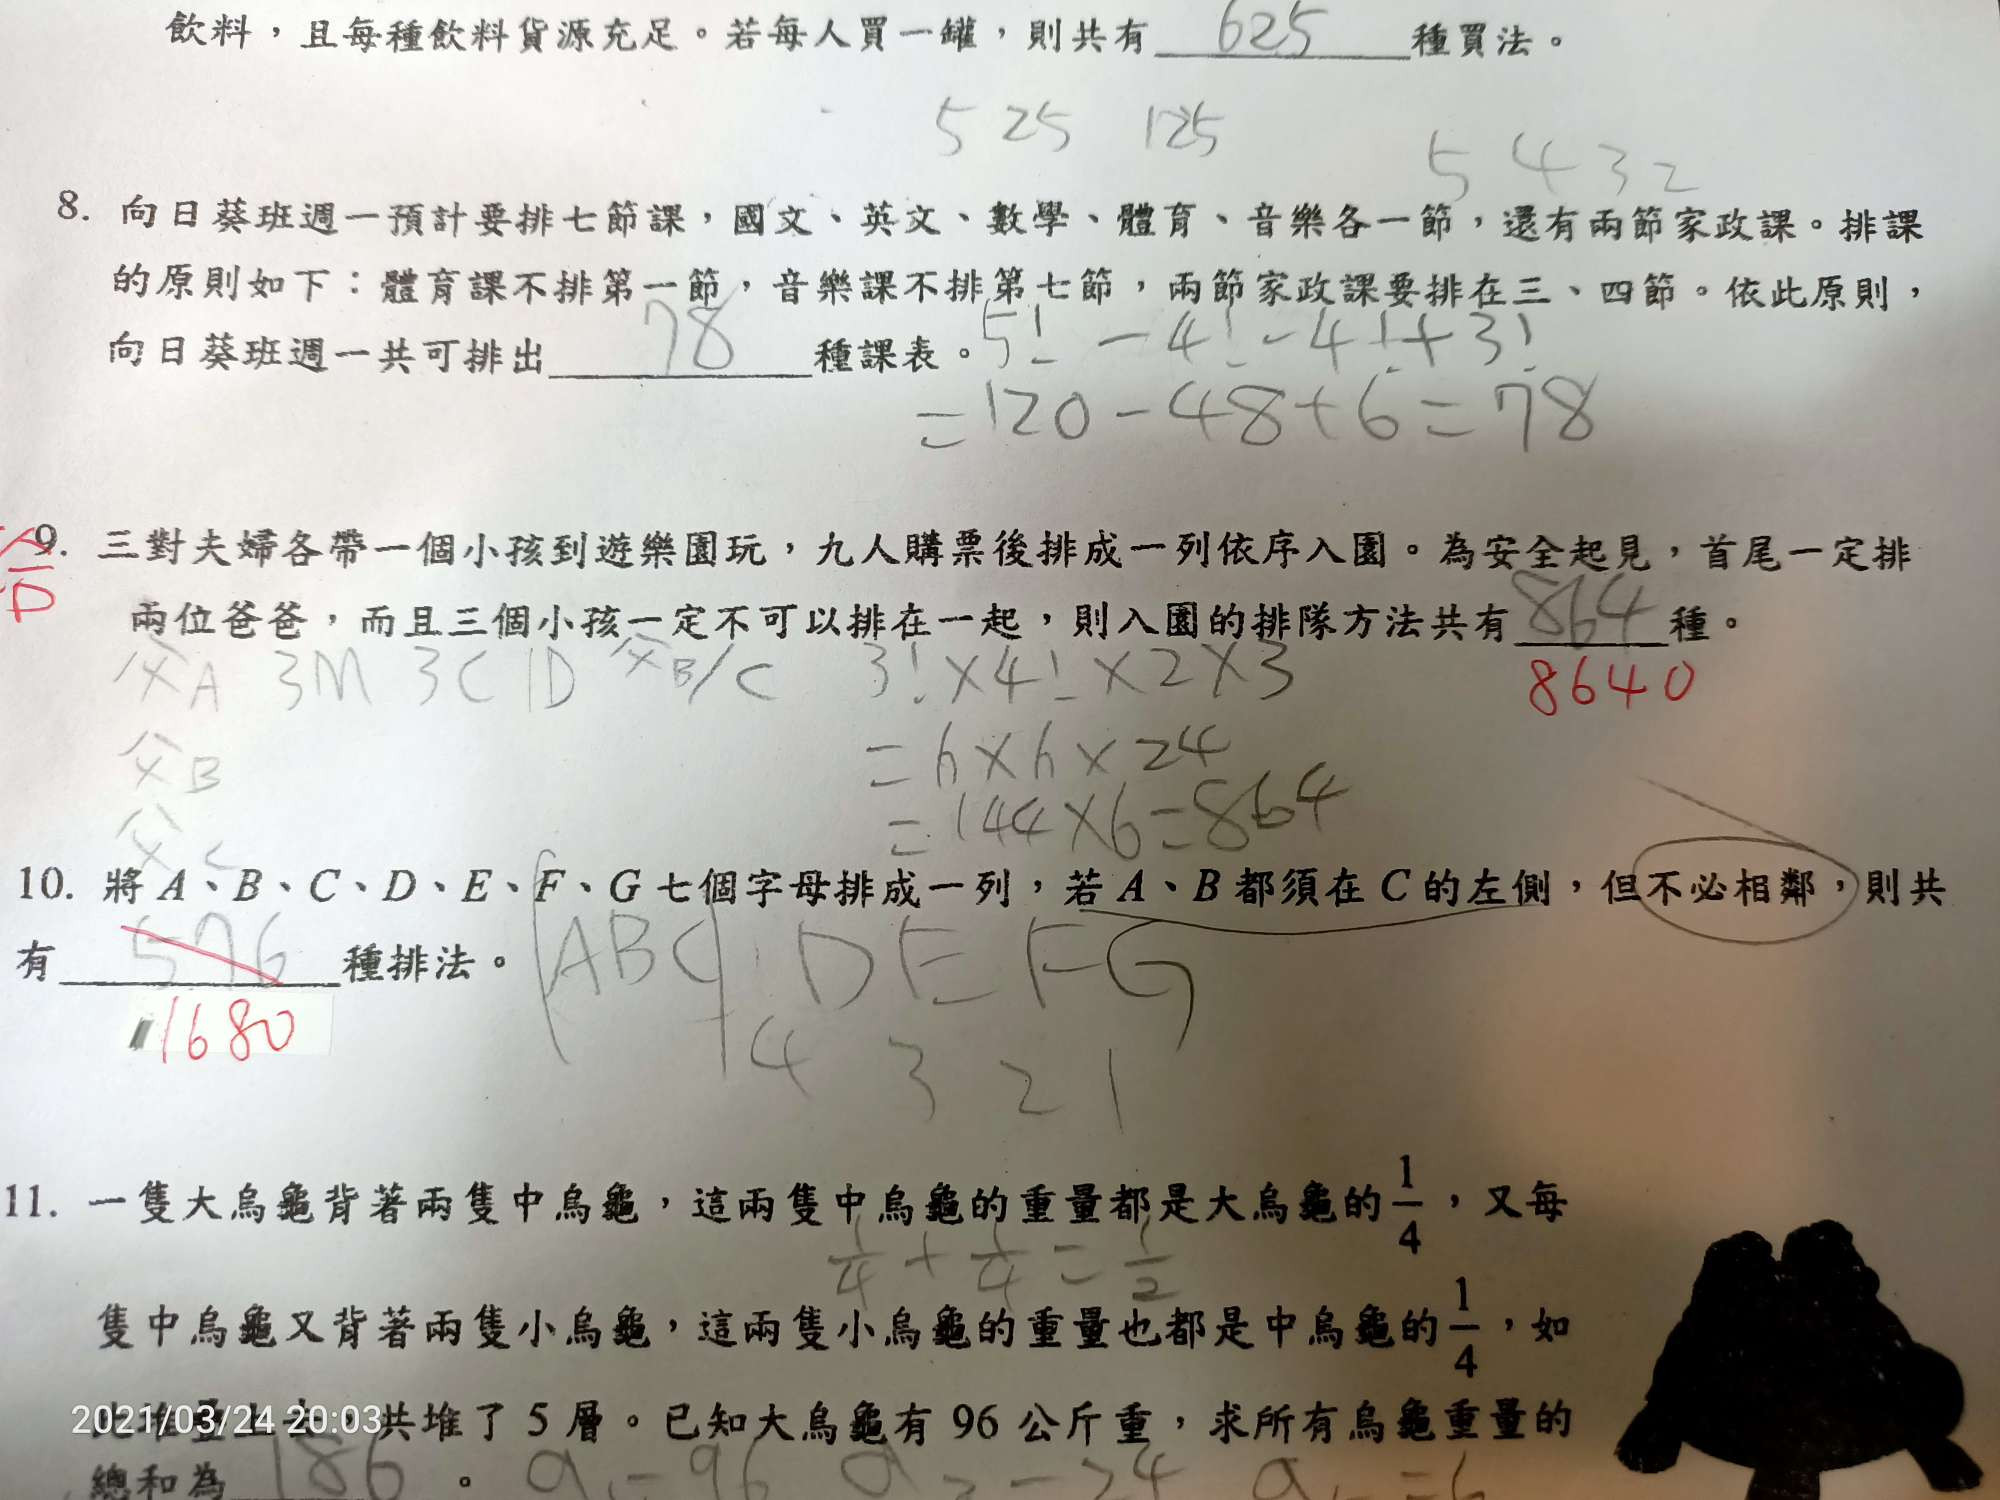 飲料，且每種飲料貨源充足。若每人買一罐，則共有 625 種買法。
5 25 125
5 4 3 2
8. 向日葵班週一預計要排七節課，國文、英文、數學、體育、音樂各一節，還有兩節家政課。排課
的原則如下：體育課不排第一節，音樂課不排第七節，兩節家政課要排在三、四節。依此原則，
向日葵班週一共可排出 78 種課表。 5! - 4! - 4! + 3!
= 120 - 48 + 6 = 78
9. 三對夫婦各帶一個小孩到遊樂園玩，九人購票後排成一列依序入園。為安全起見，首尾一定排
兩位爸爸，而且三個小孩一定不可以排在一起，則入園的排隊方法共有 864 種。
父A 3M 3C 1D 父B/C 3! × 4! × 2 × 3
8640
父B
= 6 × 6 × 24
父C
= 144 × 6 = 864
10. 將 A、B、C、D、E、F、G 七個字母排成一列，若 A、B 都須在 C 的左側，但不必相鄰，則共
有 576 種排法。
(ABC) D E F G
1680
4 3 2 1
11. 一隻大烏龜背著兩隻中烏龜，這兩隻中烏龜的重量都是大烏龜的 1/4，又每
1/4 + 1/4 = 1/2
隻中烏龜又背著兩隻小烏龜，這兩隻小烏龜的重量也都是中烏龜的 1/4，如
共堆了 5 層。已知大烏龜有 96 公斤重，求所有烏龜重量的
2021/03/24 20:03
總和為 186 。